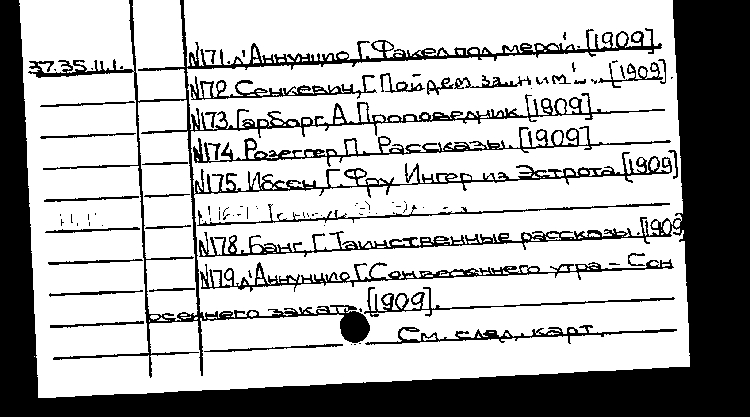 37.35.11.1. N171. д'Аннунцио, Г. Факел под мерой. [1909].
N172. Сенкевич, Г. Пойдем за ним! ... [1909].
N173. Гарборг, А. Проповедник [1909].
N174. Розеггер, П. Рассказы. [1909].
N175. Ибсен, Г. Фру Ингер из Эстрота. [1909]
N178. Банг, Г. Таинственные рассказы. [1909
N179. д'Аннунцио, Г. Сон весеннего утра – Сон
осеннего заката. [1909].
См. след. карт.